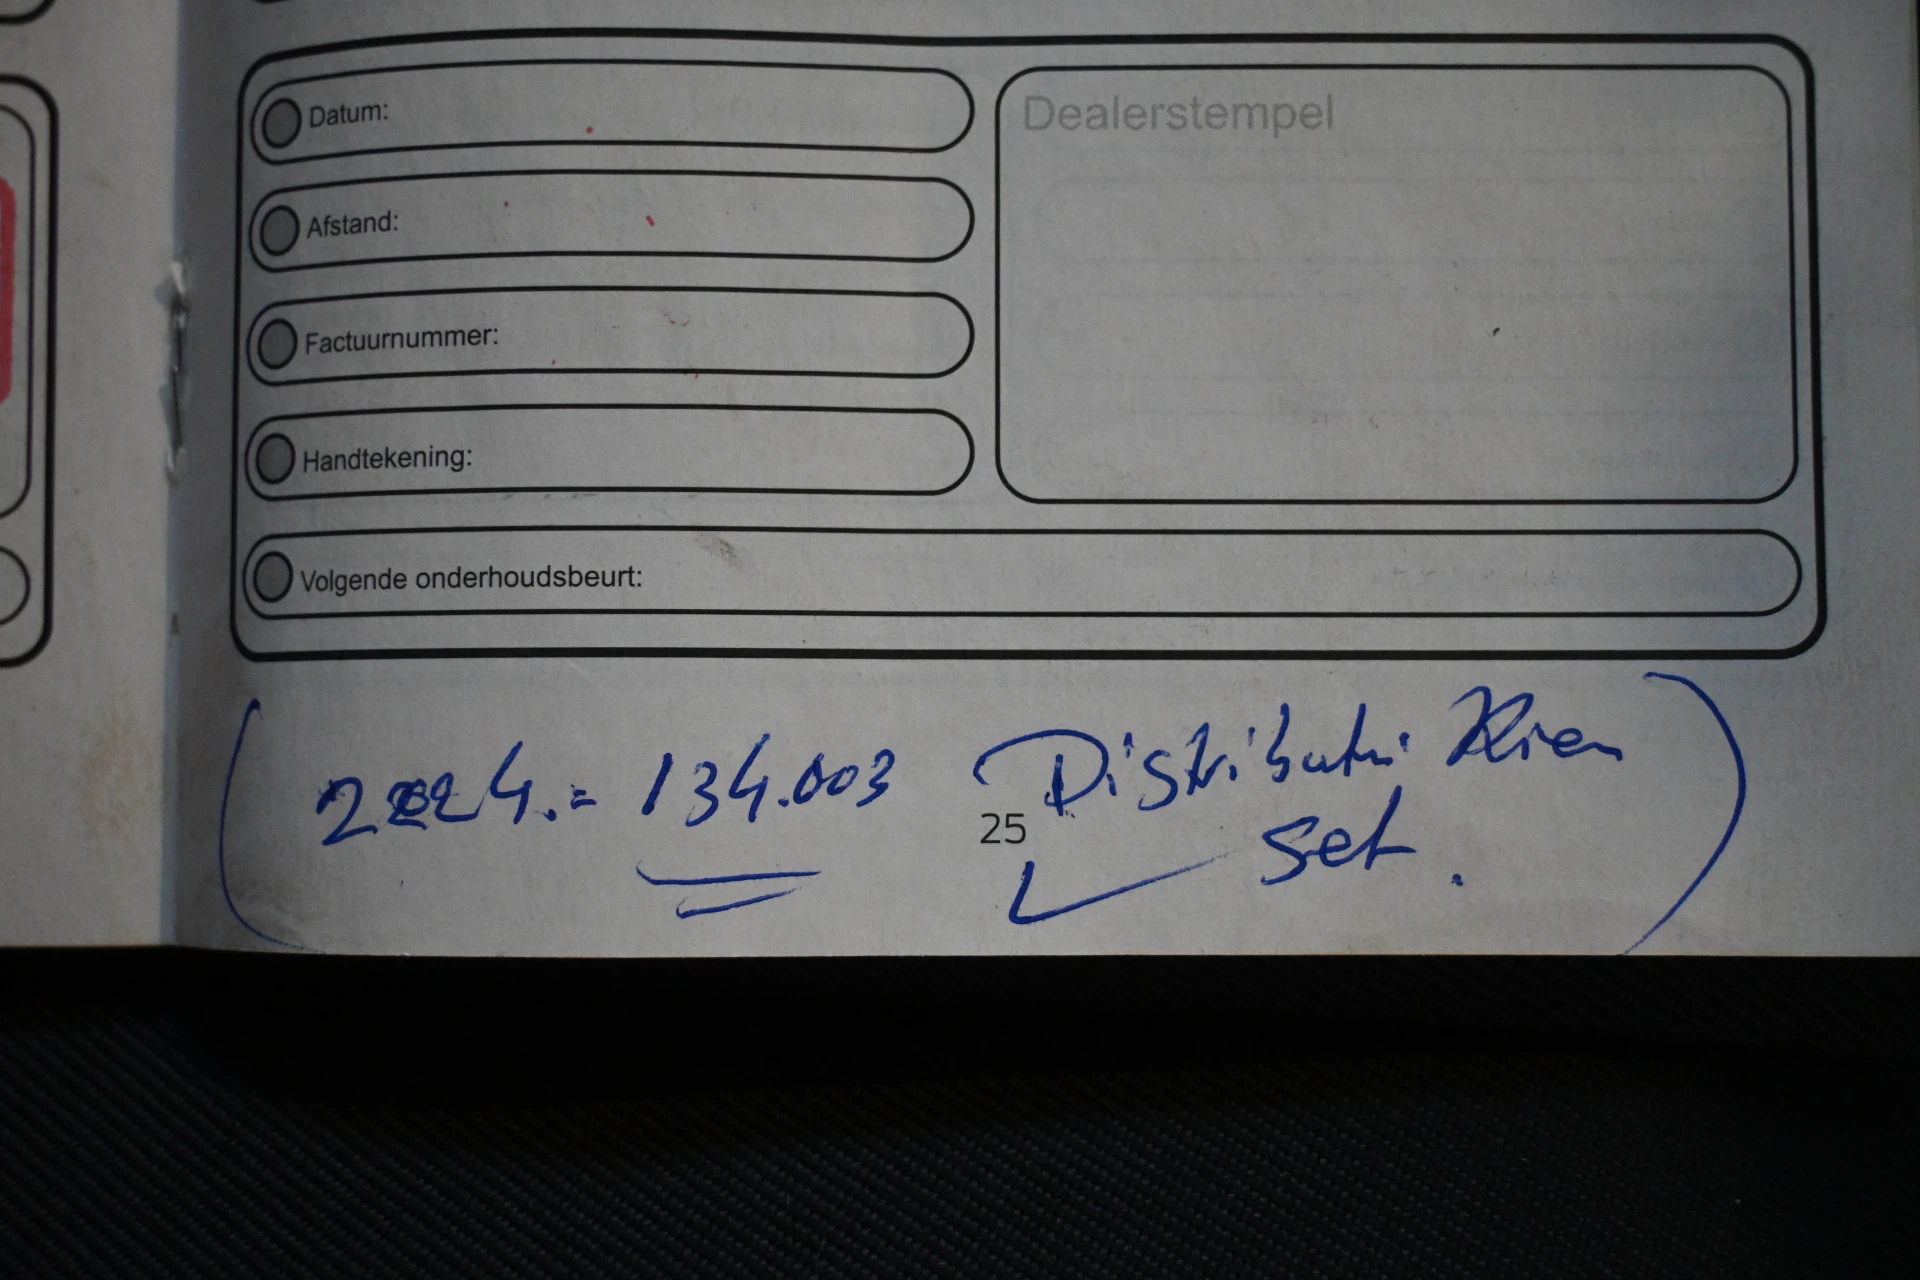 Datum:
Dealerstempel
Afstand:
Factuurnummer:
Handtekening:
Volgende onderhoudsbeurt:
2024.= 134.003 Distributi Riem
set.
25